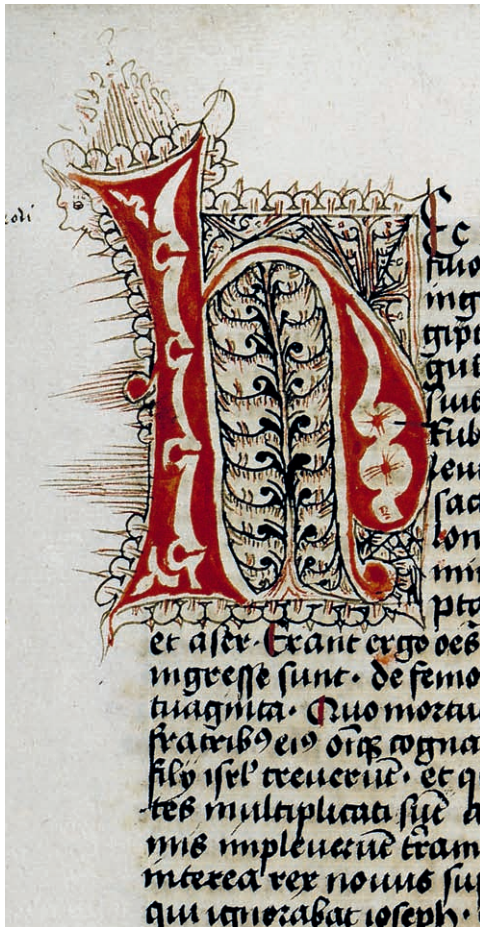 H
Ec
ing
gipt
suis
Rub
leui
sac
lon
min
pta
et aser · Erant ergo oēs
ingresse sunt · de femo
tuaginta · Quo mortu
fratribꝰ eiꝰ oīqꝫ cogna
filij isrl' creuerūt · et q
tes multiplicati sūt
mis impleuerūt t̄ram
interea rex nouus sur
qui ignorabat ioseph ·